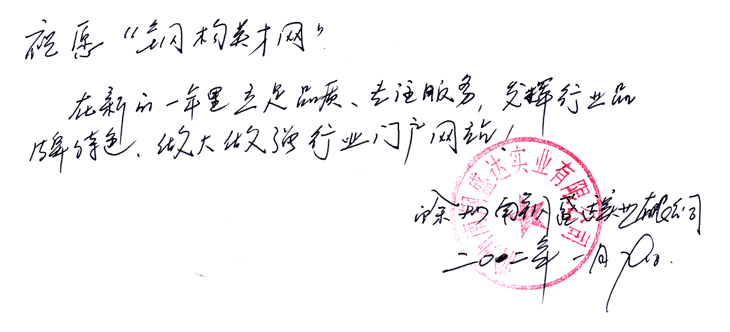 祝愿“钢构英才网”
在新的一年里立足品质、专注服务，发挥行业品
牌特色、做大做强行业门户网站！
徐州 盛达实业有限公司
二〇〇二年一月
盛达实业有限公司